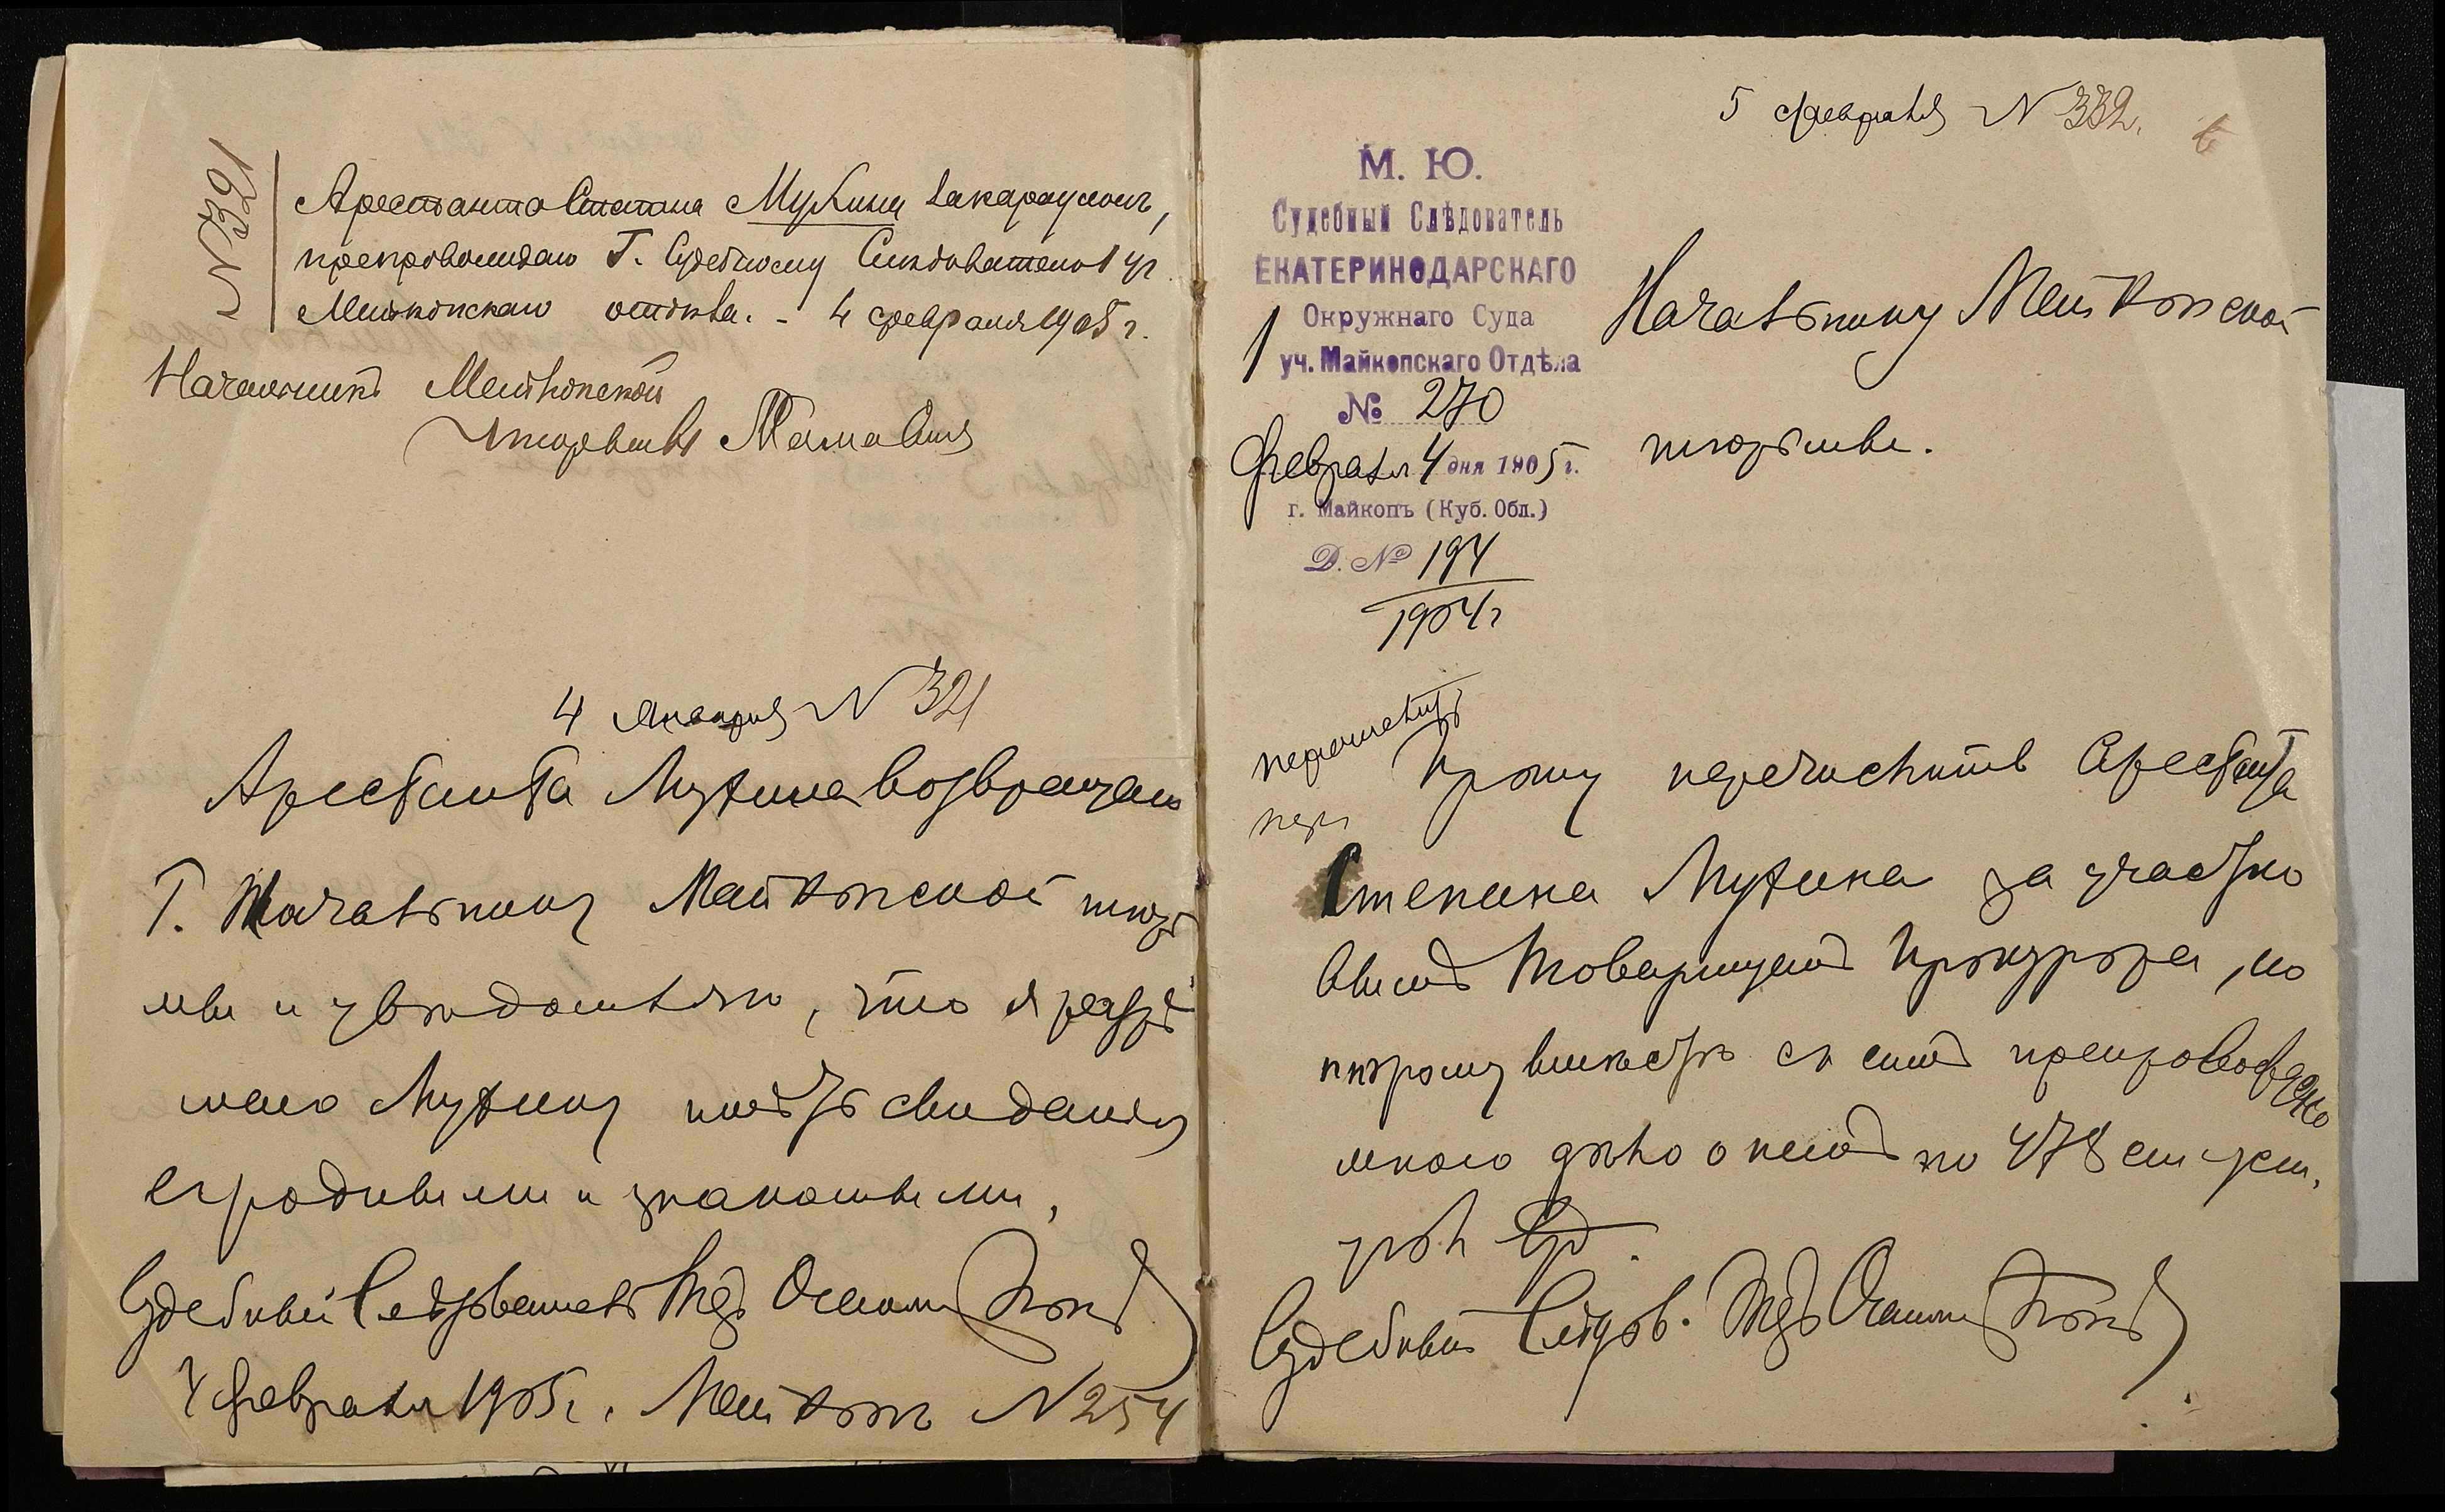 N 321
Арестанта Степана Мухина за караулом,
препровождаю Г. Судебному Следователю 1 уч
Майкопскаго отдѣла. - 4 февраля 1905 г.
Начальникъ Майкопской
тюрьмы
4 января N 321
Арестанта Мухина возвращаю
Г. Начальнику Майкопской тюрь
мы и увѣдомляю, что я разрѣ
шаю Мухину имѣть свиданія
съ родными и знакомыми.
Судебный Слѣдователь
4 февраля 1905 г. Майкопъ N 254
5 февраля N 332.
М. Ю.
Судебный Слѣдователь
ЕКАТЕРИНОДАРСКАГО
Окружнаго Суда
1 уч. Майкопскаго Отдѣла
№ 270
Февраля 4 дня 1905 г.
г. Майкопъ (Куб. Обл.)
Д. № 194
1904 г
Начальнику Майкопской
тюрьмы.
перечислить
Прошу перечислить арестанта
Степана Мухина за участко
вымъ Товарищемъ Прокурора, ко
торому вмѣстѣ съ симъ препровождено
мною дѣло о немъ по 478 ст уст.
угол. суд.
Судебный Слѣдов.